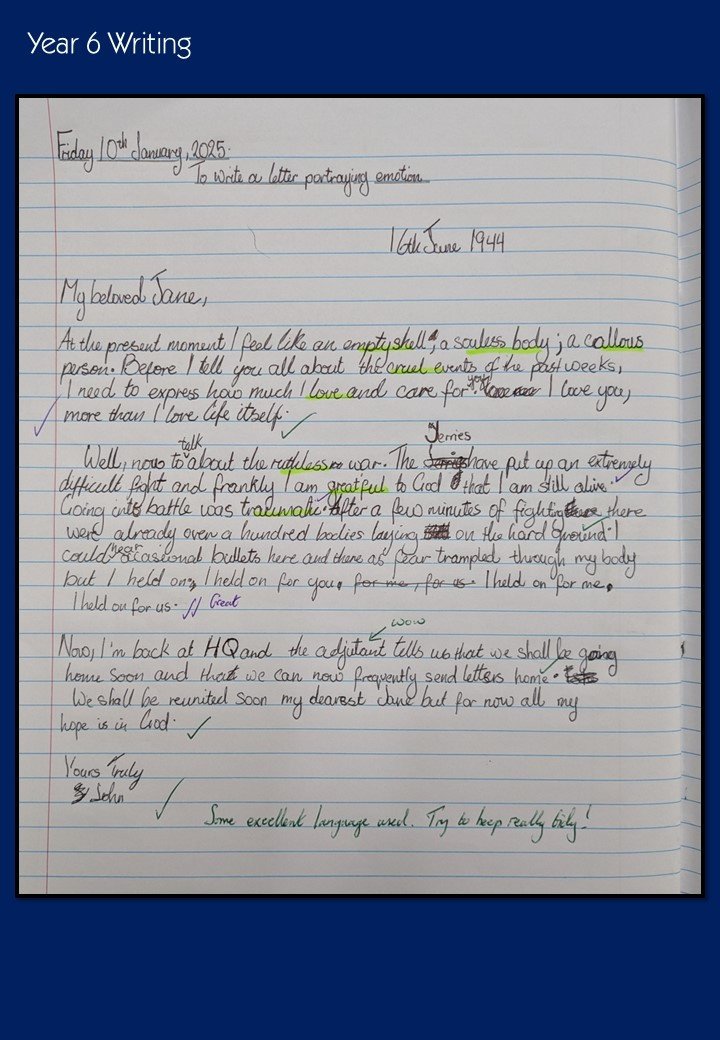 Year 6 Writing
Friday 10th January, 2025.
To write a letter portraying emotion
16th June 1944
My beloved Jane,
At the present moment I feel like an empty shell; a souless body; a callous
person. Before I tell you all about the cruel events of the past weeks,
I need to express how much I love and care for you. I love you,
more than I love life itself.
Well, now to talk about the ruthless war. The Jerries have put up an extremely
difficult fight and frankly I am greatful to God that I am still alive.
Going into battle was traumatic. After a few minutes of fighting there
were already over a hundred bodies laying on the hard ground. I
could hear occasional bullets here and there as fear trampled through my body
but I held on, I held on for you, for me, for us. I held on for me.
I held on for us. Great
wow
Now, I'm back at HQ and the adjutant tells us that we shall be going
home soon and that we can now frequently send letters home.
We shall be reunited soon my dearest Jane but for now all my
hope is in God.
Yours Truly
John
Some excellent language used. Try to keep really tidy!